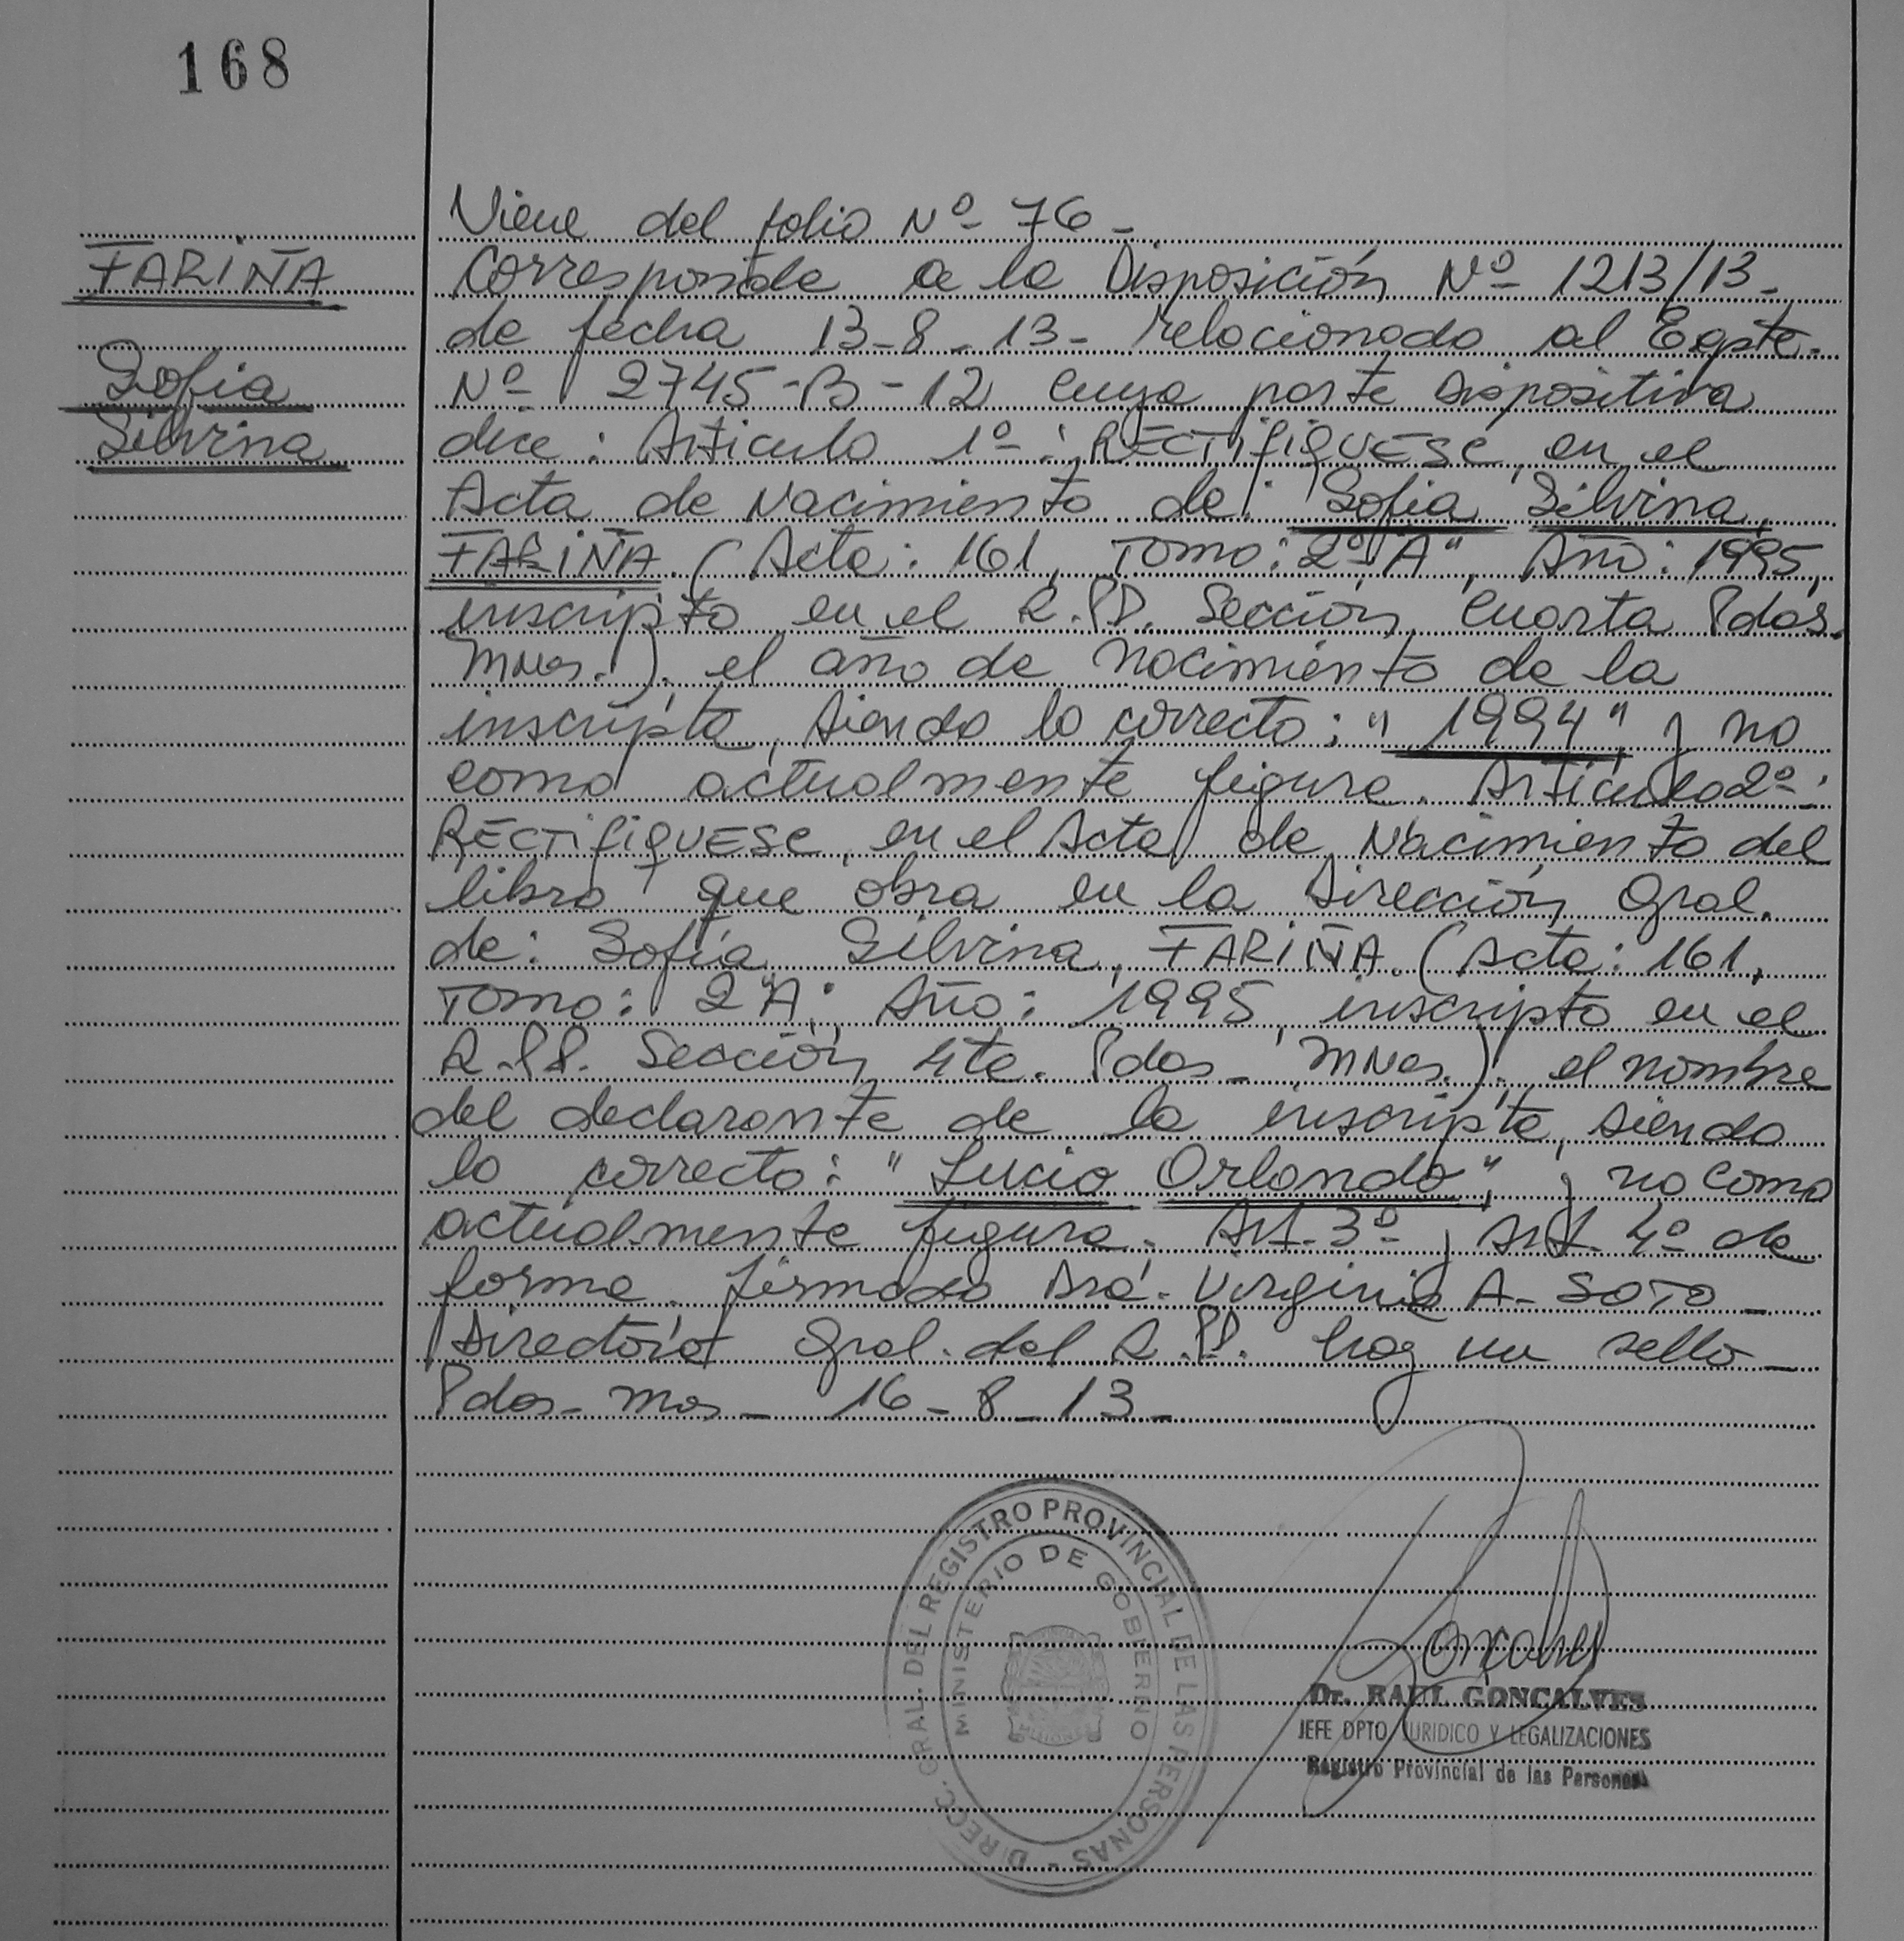 168
Viene del folio Nº 76-
FARIÑA
Sofia
Silvina
Corresponde a la Disposición Nº 1213/13-
de fecha 13-8-13- relacionado al Expte.
Nº 2745-B-12 cuya parte dispositiva
dice: Articulo 1º: RECTIFIQUESE, en el
Acta de Nacimiento de: Sofia Silvina,
FARIÑA. (Acta: 161, Tomo: 2º "A", Año: 1995,
inscripto en el R.PP. Sección Cuarta Pdas.
Mnes.). el año de nacimiento de la
inscripta, siendo lo correcto: "1994" y no
como actualmente figura. Articulo 2º:
RECTIFIQUESE, en el Acta de Nacimiento del
libro que obra en la Dirección Gral.
de: Sofía Silvina, FARIÑA. (Acta: 161,
Tomo: 2"A", Año: 1995, inscripto en el
R.PP. Sección 4ta. Pdas- Mnes.). el nombre
del declarante de la inscripta, siendo
lo correcto: "Lucio Orlando", y no como
actualmente figura. Art. 3º y Art. 4º de
forma. firmado Dra. Virginia A- SOTO-
Directora Gral. del R.PP. hay un sello-
Pdas- Mes- 16-8-13-
DIRECC. GRAL. DEL REGISTRO PROVINCIAL DE LAS PERSONAS -
MINISTERIO DE GOBIERNO
Dr. RAUL GONCALVES
JEFE DPTO JURIDICO Y LEGALIZACIONES
Registro Provincial de las Personas